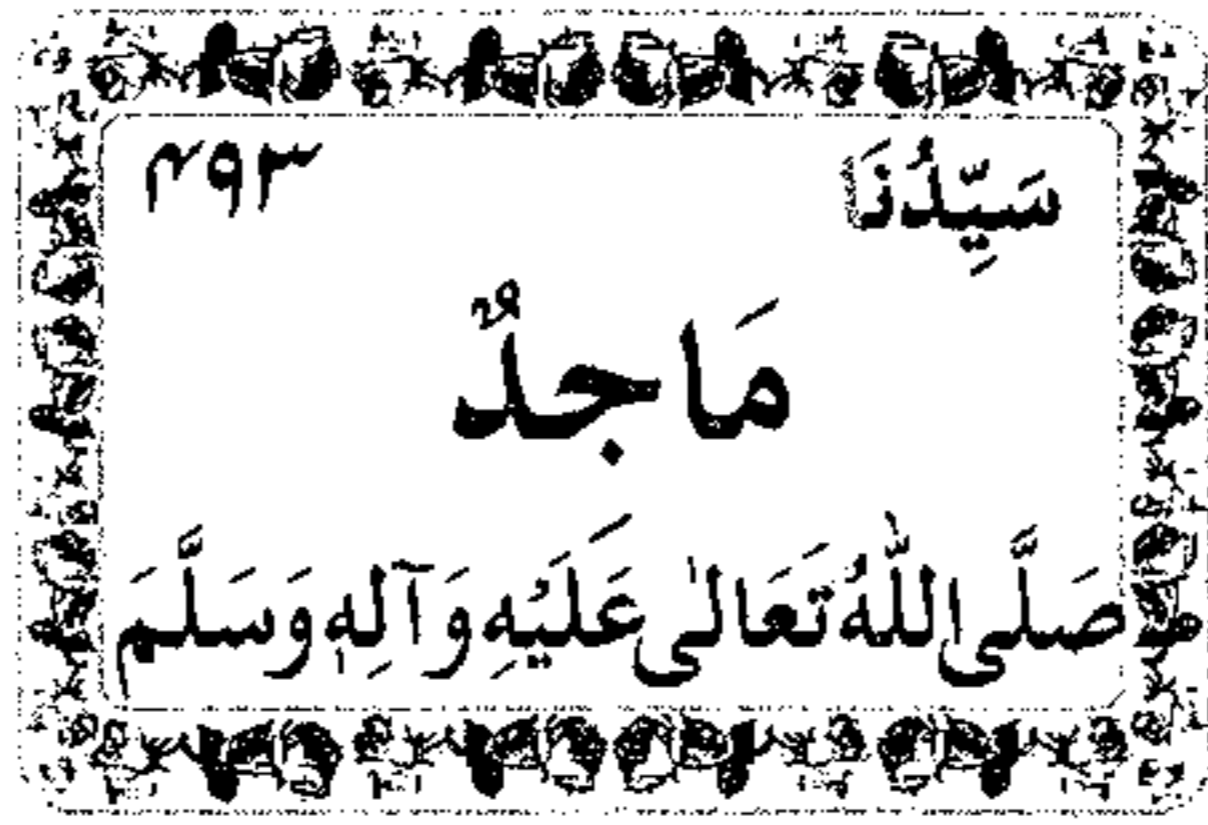 سَيِّدُنَا ۴۹۳
مَاجدٌ
صَلَّى اللّٰهُ تَعَالٰى عَلَيْهِ وَآلِهٖ وَسَلَّمَ